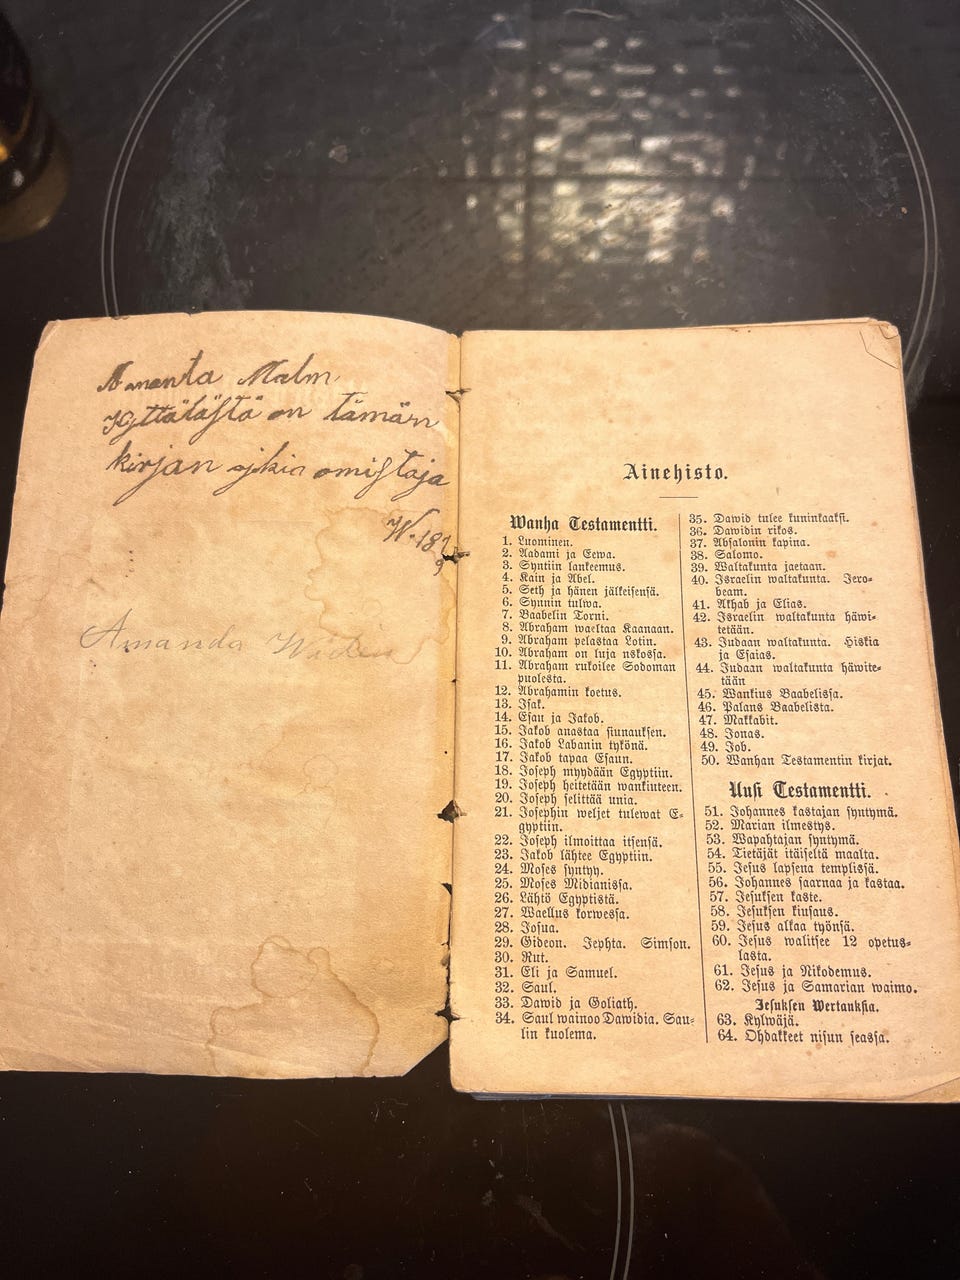 Amanta Malm
Kyttälästä on tämän
kirjan oikia omistaja
W. 187
9
Amanda
Ainehisto.
Wanha Testamentti.
1. Luominen.
2. Aadami ja Eewa.
3. Syntiin lankeemus.
4. Kain ja Abel.
5. Seth ja hänen jälkeisensä.
6. Synnin tulwa.
7. Baabelin Torni.
8. Abraham waeltaa Kaanaan.
9. Abraham pelastaa Lotin.
10. Abraham on luja uskossa.
11. Abraham rukoilee Sodoman
puolesta.
12. Abrahamin koetus.
13. Isak.
14. Esau ja Jakob.
15. Jakob anastaa siunauksen.
16. Jakob Labanin tykönä.
17. Jakob tapaa Esaun.
18. Joseph myydään Egyptiin.
19. Joseph heitetään wankiuteen.
20. Joseph selittää unia.
21. Josephin weljet tulewat E-
gyptiin.
22. Joseph ilmoittaa itsensä.
23. Jakob lähtee Egyptiin.
24. Moses syntyy.
25. Moses Midianissa.
26. Lähtö Egyptistä.
27. Waellus korwessa.
28. Josua.
29. Gideon. Jephta. Simson.
30. Rut.
31. Eli ja Samuel.
32. Saul.
33. Dawid ja Goliath.
34. Saul wainoo Dawidia. Sau-
lin kuolema.
35. Dawid tulee kuninkaaksi.
36. Dawidin rikos.
37. Absalonin kapina.
38. Salomo.
39. Waltakunta jaetaan.
40. Israelin waltakunta. Jero-
beam.
41. Ahab ja Elias.
42. Israelin waltakunta häwi-
tetään.
43. Judaan waltakunta. Hiskia
ja Esaias.
44. Judaan waltakunta häwite-
tään
45. Wankius Baabelissa.
46. Palaus Baabelista.
47. Makkabit.
48. Jonas.
49. Job.
50. Wanhan Testamentin kirjat.
Uusi Testamentti.
51. Johannes kastajan syntymä.
52. Marian ilmestys.
53. Wapahtajan syntymä.
54. Tietäjät itäiseltä maalta.
55. Jesus lapsena templissä.
56. Johannes saarnaa ja kastaa.
57. Jesuksen kaste.
58. Jesuksen kiusaus.
59. Jesus alkaa työnsä.
60. Jesus walitsee 12 opetus-
lasta.
61. Jesus ja Nikodemus.
62. Jesus ja Samarian waimo.
Jesuksen Wertauksia.
63. Kylwäjä.
64. Ohdakkeet nisun seassa.